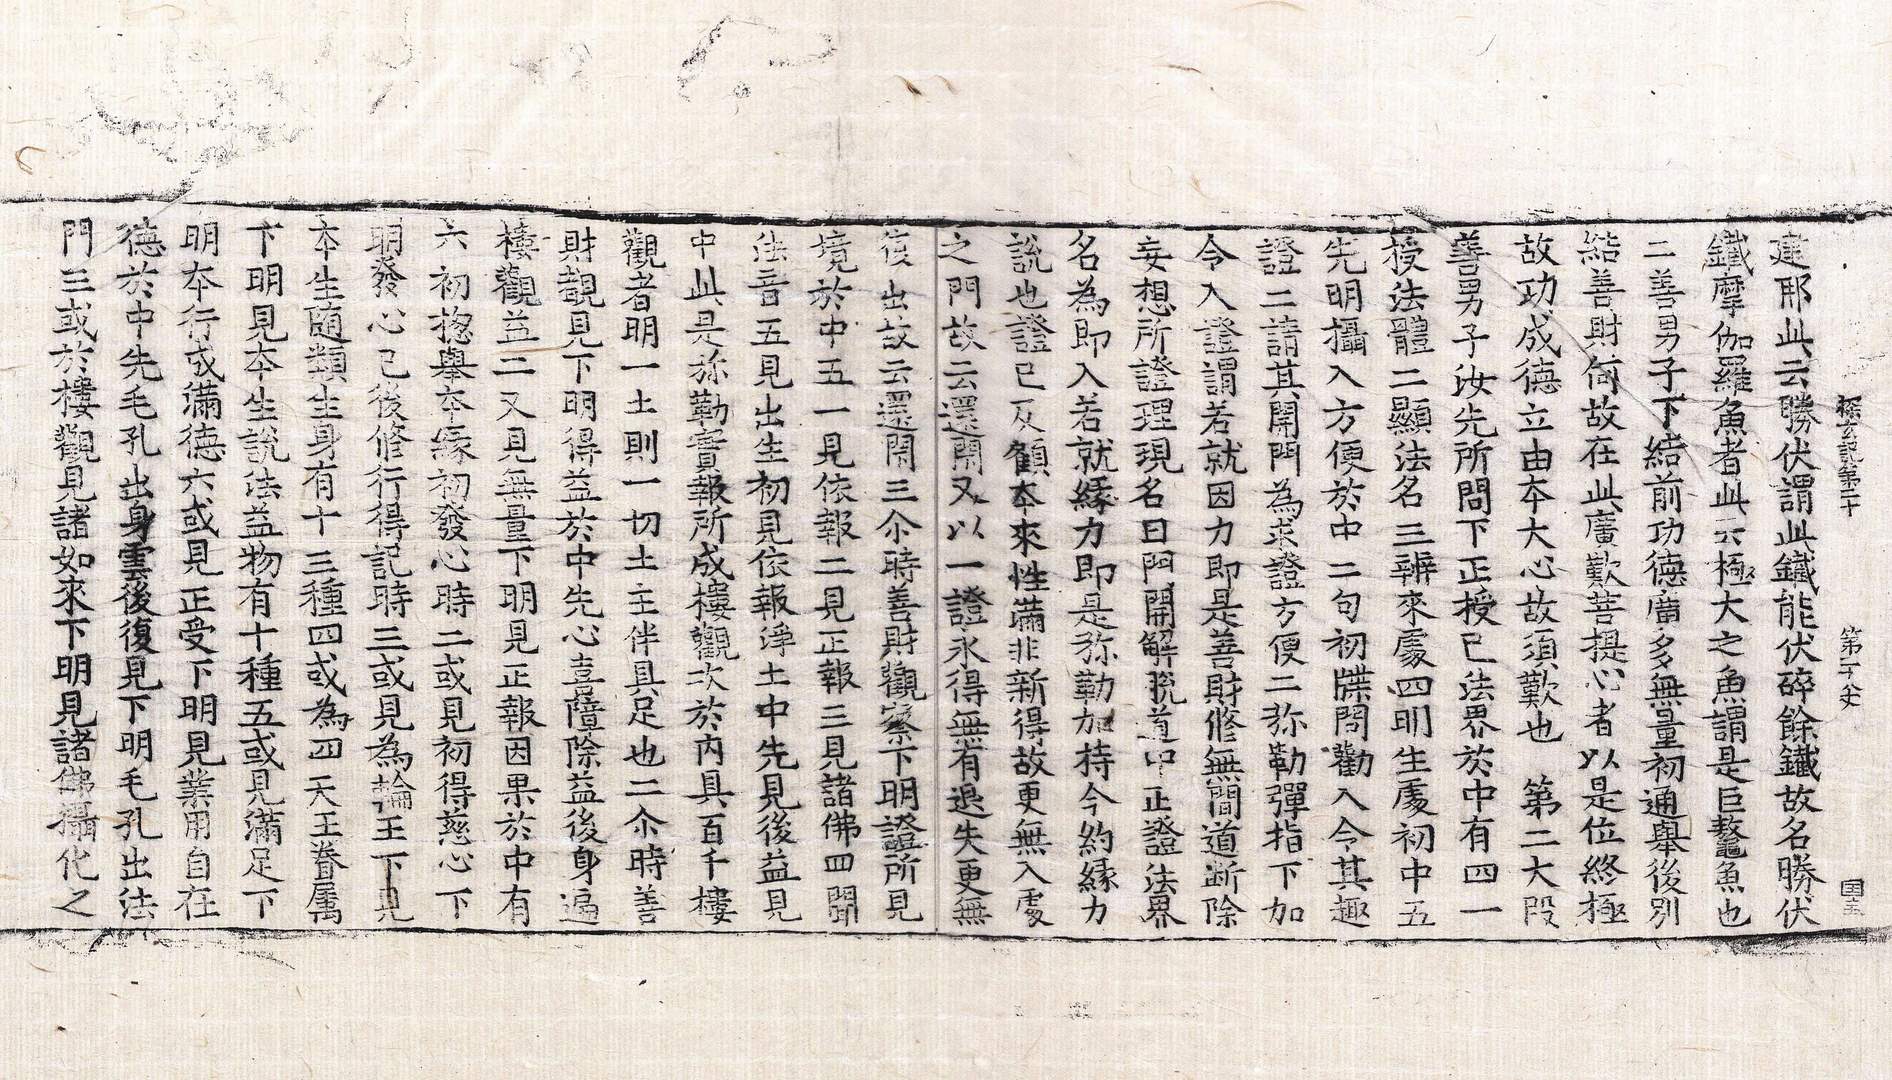 探玄記第二十 第二十丈 国宝
建耶此云勝伏謂此鐵能伏碎餘鐵故名勝伏
鐵摩伽羅魚者此云極大之魚謂是巨鼇魚也
二善男子下結前功德廣多無量初通舉後別
結善財何故在此廣歎菩提心者以是位終極
故功成德立由本大心故須歎也 第二大段
善男子汝先所問下正授已法界於中有四一
授法體二顯法名三辨來處四明生處初中五
先明攝入方便於中二句初牒問勸入令其趣
證二請其開門為求證方便二弥勒彈指下加
令入證謂若就因力即是善財修無間道断除
妄想所證理現名曰門開解脱道中正證法界
名為即入若就縁力即是弥勒加持今約縁力
說也證已反顧本來性滿非新得故更無入處
之門故云還閇又以一證永得無有退失更無
復出故云還閇三尒時善財觀察下明證所見
境於中五一見依報二見正報三見諸佛四聞
法音五見出生初見依報淨土中先見後益見
中此是弥勒實報所成樓觀次於內具百千樓
觀者明一土則一切土主伴具足也二尒時善
財觀見下明得益於中先心喜障除益後身遍
樓觀益二又見無量下明見正報因果於中有
六初捴舉本縁初發心時二或見初得慈心下
明發心已後修行得記時三或見為輪王下見
本生随類生身有十三種四或為四天王眷属
下明見本生說法益物有十種五或見滿足下
明本行成滿德六或見正受下明見業用自在
德於中先毛孔出身雲後復見下明毛孔出法
門三或於樓觀見諸如來下明見諸佛攝化之